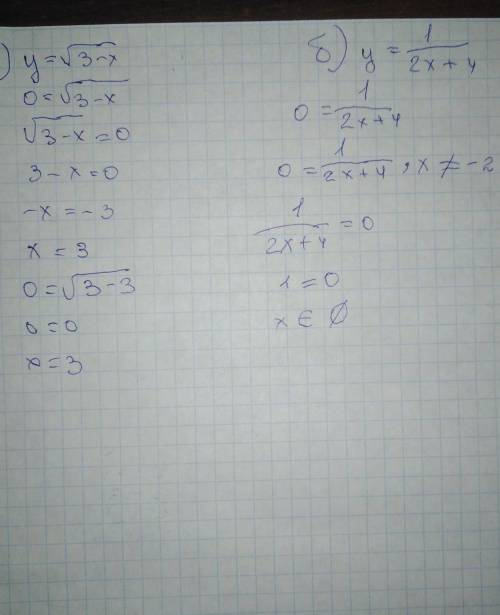 ) y = √3-x
0 = √3-x
√3-x = 0
3 - x = 0
-x = -3
x = 3
0 = √3-3
0 = 0
x = 3
б) y = 1/2x+4
0 = 1/2x+4
0 = 1/2x+4 , x ≠ -2
1/2x+4 = 0
1 = 0
x ∈ ∅